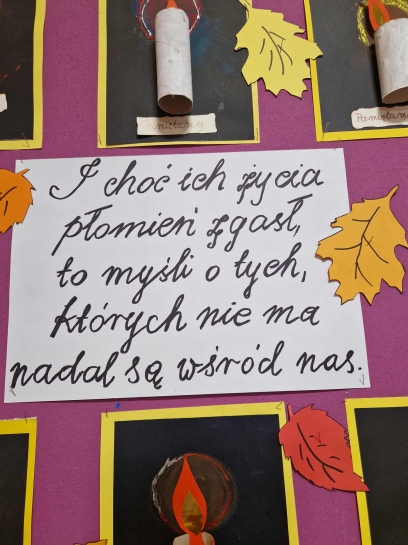 Pamiętamy
Pamiętamy
I choć ich życia
płomień zgasł,
to myśli o tych,
których nie ma
nadal są wśród nas.